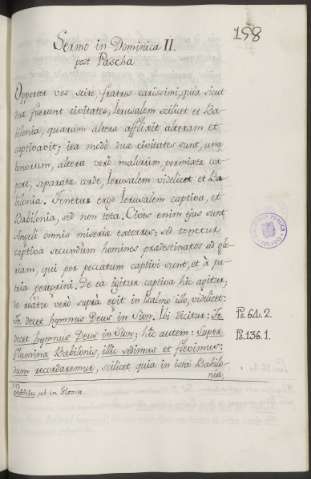 158
Sermo in Dominica II.
post Pascha
Opportet vos scire fratres carissimi, quia sicut
duæ fuerunt civitates, Ierusalem scilicet et Ba-
bilonia, quarum altera afflixit alteram et
captivavit; ita modò duæ civitates sunt, una
bonorum, altera verò malorum, permixtæ cor-
pore, separatæ corde, Ierusalem videlicet et Ba-
bilonia. Tenetur ergo Ierusalem captiva, et
Babilonia, sed non tota. Cives enim ejus sunt
Angeli omnis miseria exterres; sed tenetur
captiva secundum homines prædestinatos ad glo-
riam, qui per peccatum captivi sunt, et à pa-
tria peregrini. De ea igitur captiva hîc agitur;
de matre verò supra egit in Psalmo illo, videlicet:
Te decet hymnus Deus in Sion. Ibi dicitur: Te
decet hymnus Deus in Sion; hîc autem: Super
flumina Babilonis, illic sedimus et flevimus:
dum recordaremur, scilicet quia in ista Babilo-
nia,
Ps. 64. 2.
Ps. 136. 1.